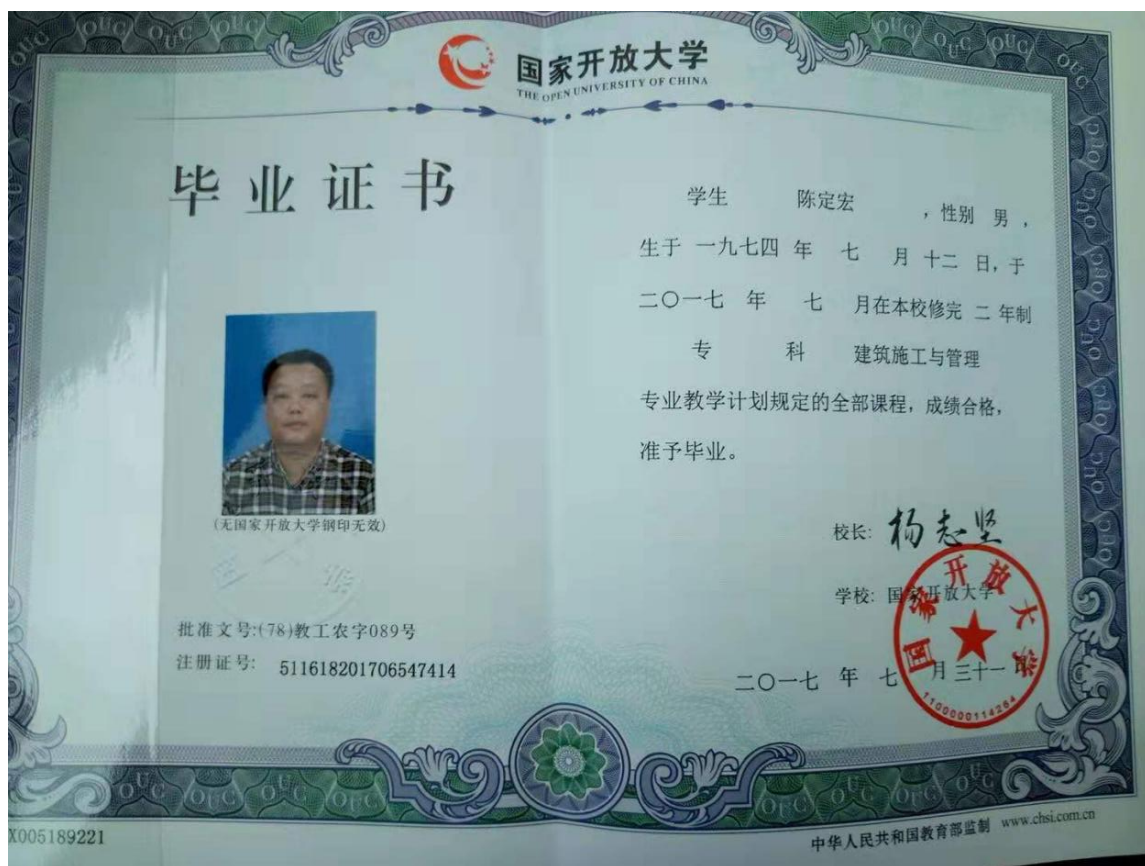 国家开放大学
THE OPEN UNIVERSITY OF CHINA
毕业证书
(无国家开放大学钢印无效)
批准文号:(78)教工农字089号
注册证号: 511618201706547414
学生 陈定宏 ,性别 男,
生于 一九七四 年 七 月 十二 日,于
二〇一七 年 七 月在本校修完 二 年制
专 科 建筑施工与管理
专业教学计划规定的全部课程,成绩合格,
准予毕业。
校长: 杨志坚
学校: 国家开放大学
二〇一七 年 七 月三十一日
国家开放大学
1100000114264
X005189221
中华人民共和国教育部监制 www.chsi.com.cn